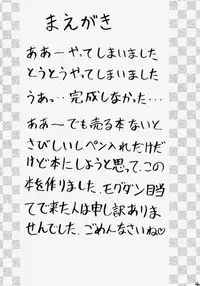 まえがき
ああ〜やってしまいました
とうとうやってしまいました
うあっ・・完成しなかった・・・
ああ〜でも売る本ないと
さびしいしペン入れだけだ
けど本にしようと思って、この
本を作りました。モグダン目当
てで来た人は申し訳ありま
せんでした。ごめんなさいね♡